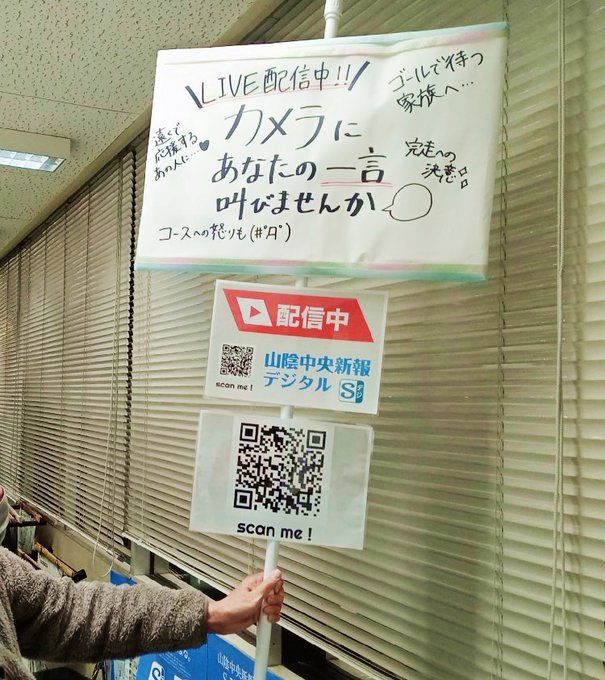 LIVE配信中!!
カメラに
あなたの一言
叫びませんか
ゴールで待つ
家族へ…
遠くで
応援する
あの人に…♥
完走への
決意
コースへの怒りも(#ﾟДﾟ)
配信中
scan me!
山陰中央新報
デジタル
Sデジ
scan me!
山陰中央新報